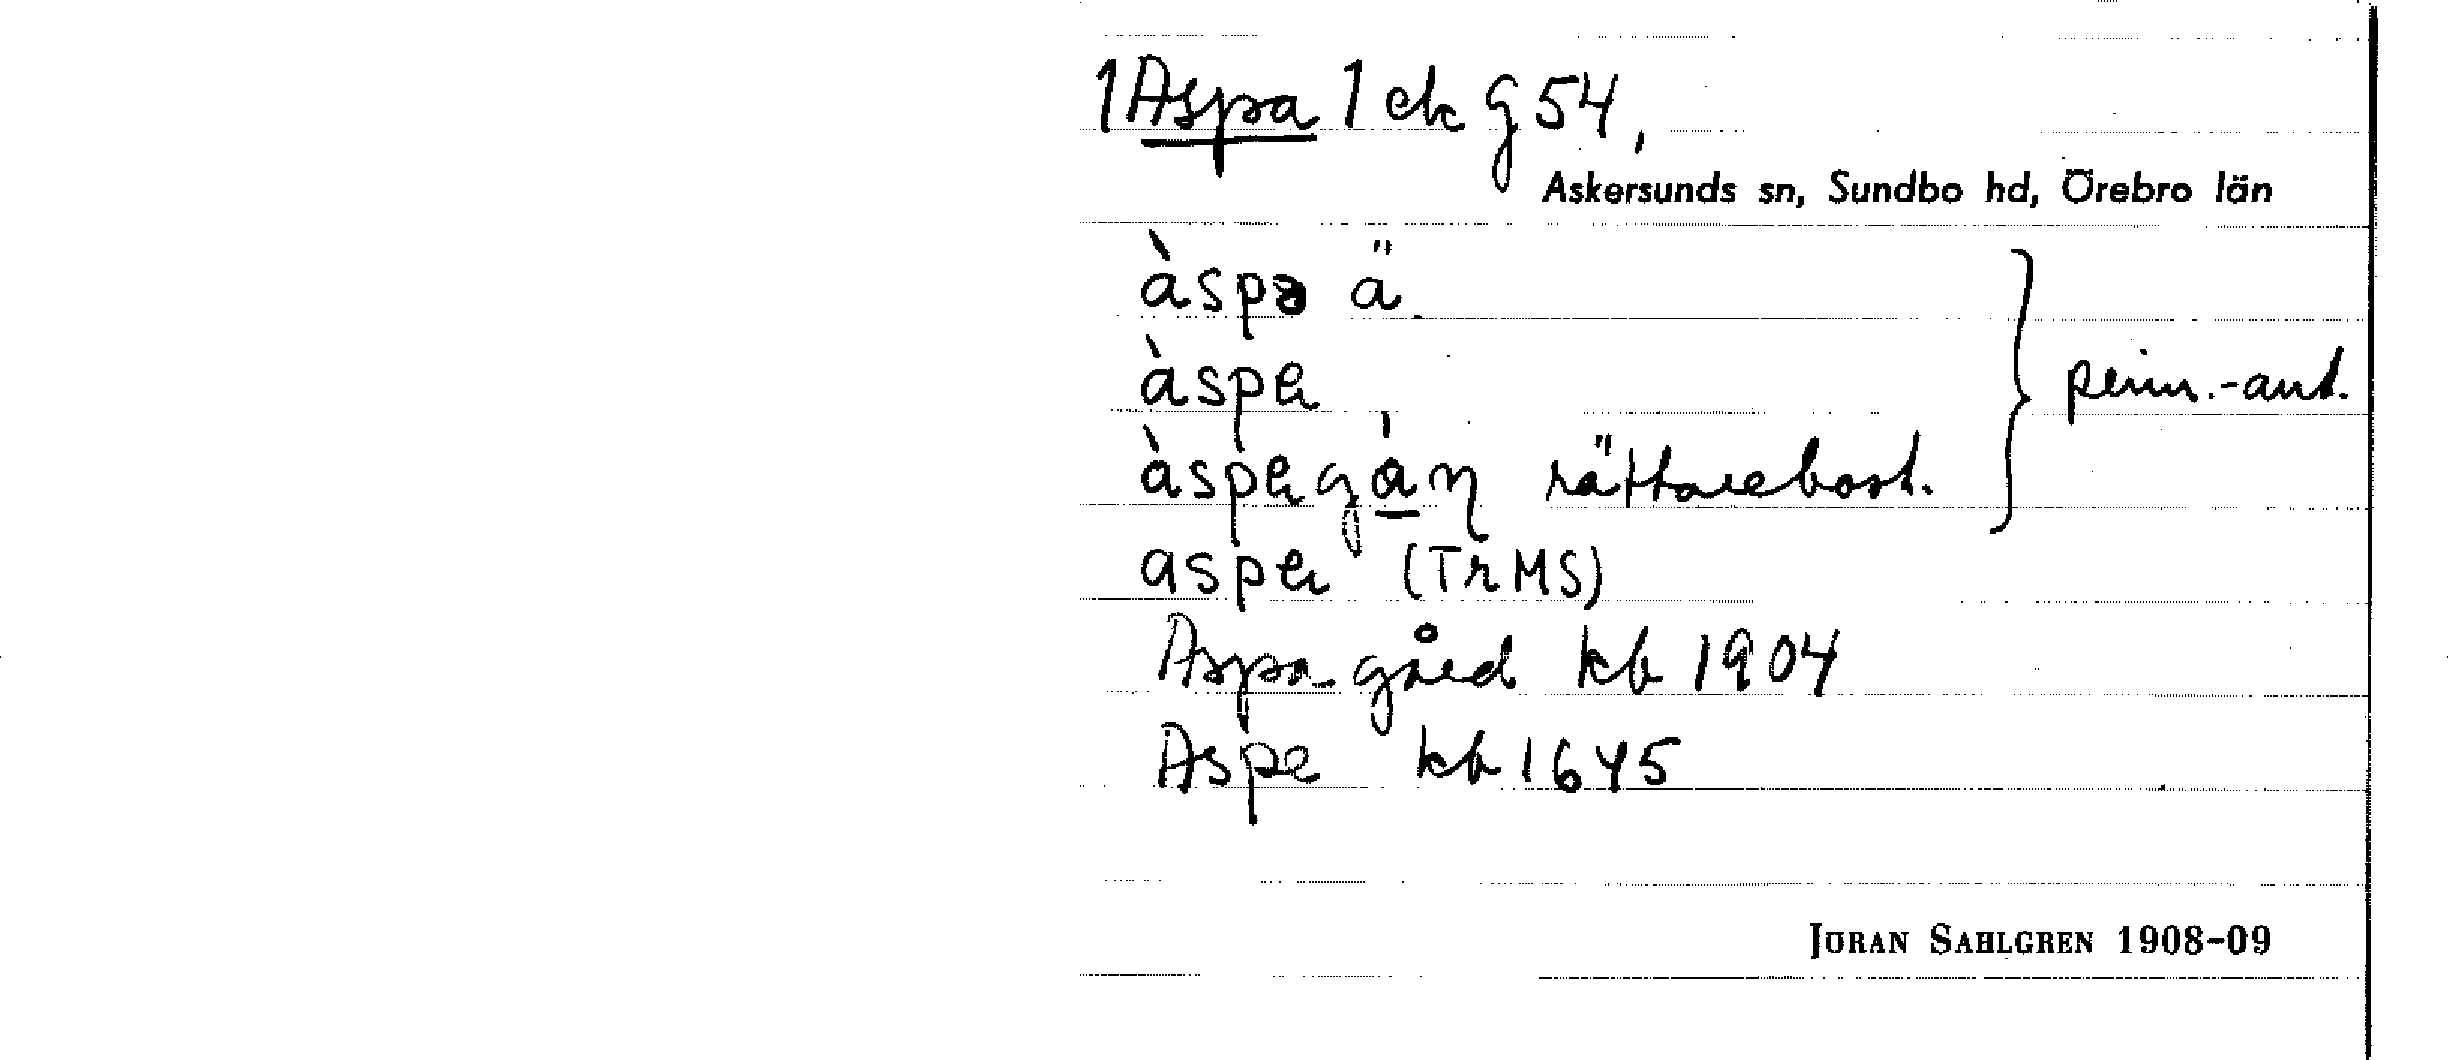 1 Aspa 1 ek G 54,
Askersunds sn, Sundbo hd, Örebro län
àspə ä.
àspa
àspagán rättarebost.
penn.-ant.
aspa (TrMS)
Aspa-gård kb 1904
Aspe kb 1645
JÖRAN SAHLGREN 1908-09